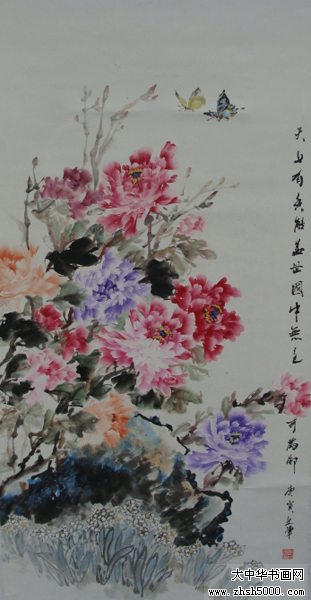 天上有香能蓋世國中無色
可為邻
庚寅
大中华书画网
www.zhsh5000.com